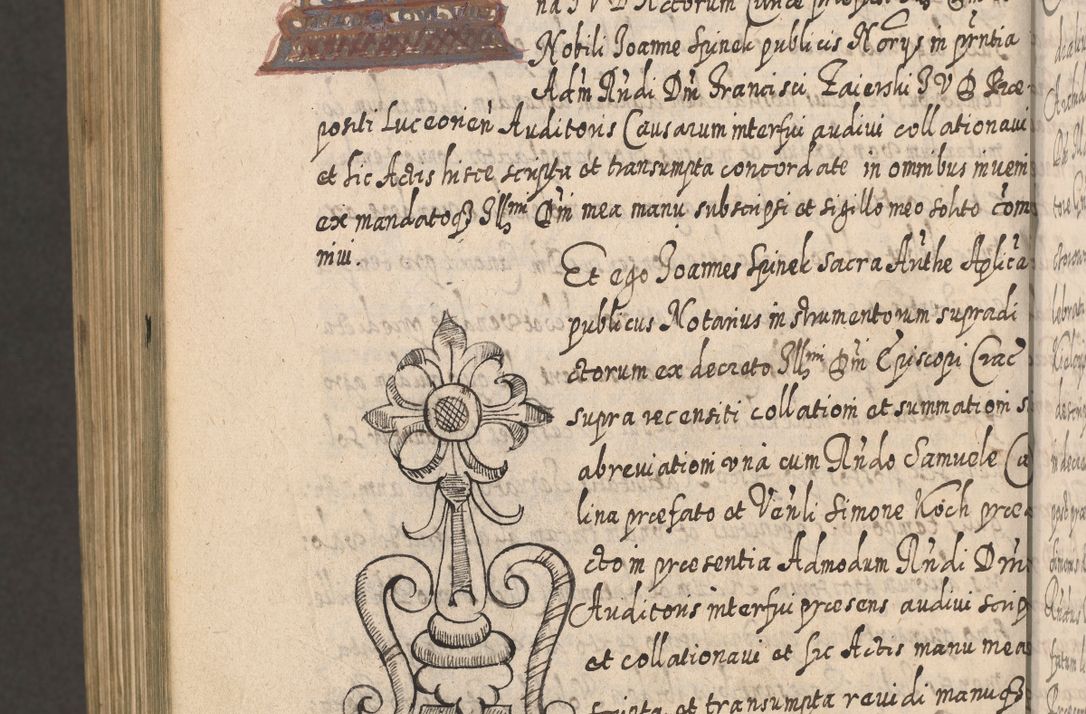 Nobili Joanne Spinek publicis Norijs in prntia
Adm Rndi Dm Francisci Zaierski J V D Præ
positi Luceorien Auditoris Causarum interfui audivi collationavi
et sic Actis hisce scripta et transumpta concordate in omnibus inveni
ex mandatoq3 Illmi Dm mea manu subscripsi et sigillo meo solito com
mivi.
Et ego Joannes Spinek Sacra Authe Aplica
publicus Notarius instrumentorum supradi
ctorum ex decreto Illmi Dm Episcopi Crac
supra recensiti collationi et summationi
abreviationi una cum Rndo Samuele Ca
lina præfato et Venli Simone Koch præ
cto in præsentia Admodum Rndi Dm
Auditoris interfui præsens audivi scrip
et collationavi et sic Actis manu mea
scripta et transumpta revidi manuq3